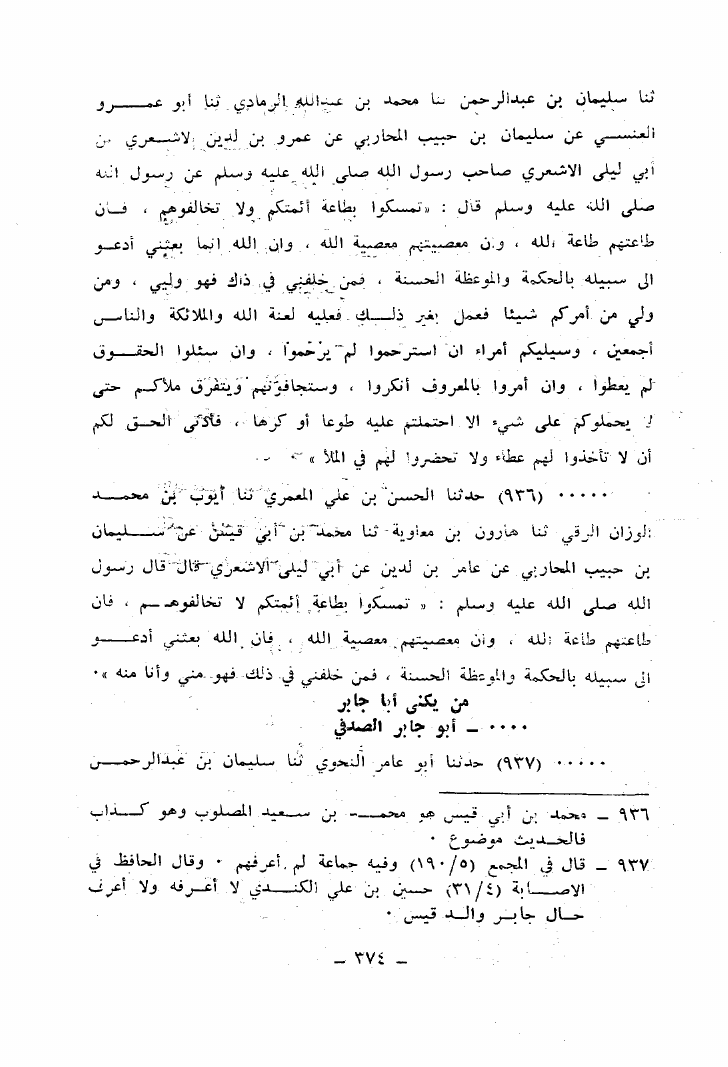 ثنا سليمان بن عبدالرحمن ثنا محمد بن عبدالله الرمادي ثنا أبو عمـــرو
العنسـي عن سليمان بن حبيب المحاربي عن عمرو بن لدين الاشـعري عن
أبي ليلى الاشعري صاحب رسول الله صلى الله عليه وسلم عن رسول الله
صلى الله عليه وسلم قال : «تمسكوا بطاعة أئمتكم ولا تخالفوهم ، فـان
طاعتهم طاعة الله ، وان معصيتهم معصية الله ، وان الله انما بعثني أدعـو
الى سبيله بالحكمة والموعظة الحسنة ، فمن خلفني في ذاك فهو وليي ، ومن
ولي من أمركم شيئا فعمل بغير ذلــك فعليه لعنة الله والملائكة والناس
أجمعين ، وسيليكم أمراء ان استرحموا لم يرحموا ، وان سئلوا الحقـوق
لم يعطوا ، وان أمروا بالمعروف أنكروا ، وستخافونهم ويتفرق ملأكـم حتى
لا يحملوكم على شيء الا احتملتم عليه طوعا أو كرها ، فأدنى الحـق لكم
أن لا تأخذوا لهم عطاء ولا تحضروا لهم في الملأ »
٠٠٠٠٠ (٩٣٦) حدثنا الحسن بن علي المعمري ثنا أيوب بن محمـد
الوزان الرقي ثنا هارون بن معاوية ثنا محمد بن أبي قيس عن سـليمان
بن حبيب المحاربي عن عامر بن لدين عن أبي ليلى الاشعري قال قال رسول
الله صلى الله عليه وسلم : « تمسكوا بطاعة أئمتكم لا تخالفوهـم ، فان
طاعتهم طاعة الله ، وان معصيتهم معصية الله ، فان الله بعثني أدعـــو
الى سبيله بالحكمة والموعظة الحسنة ، فمن خلفني في ذلك فهو مني وأنا منه »٠
من يكنى أبا جابر
٠٠٠٠ ـ أبو جابر الصدفي
٠٠٠٠٠ (٩٣٧) حدثنا أبو عامر النحوي ثنا سليمان بن عبدالرحمــن
٩٣٦ ـ محمد بن أبي قيس هو محمـد بن سـعيد المصلوب وهو كــذاب
فالحـديث موضوع ٠
٩٣٧ ـ قال في المجمع (١٩٠/٥) وفيه جماعة لم أعرفهم ٠ وقال الحافظ في
الاصـابة (٣١/٤) حسـين بن علي الكنـدي لا أعـرفه ولا أعرف
حـال جابـر والـد قيس ٠
ـ ٣٧٤ ـ